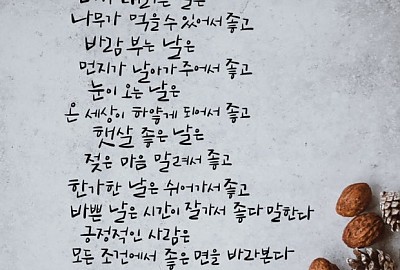 날은
나무가 먹을 수 있어서 좋고
바람 부는 날은
먼지가 날아가 주어서 좋고
눈이 오는 날은
온 세상이 하얗게 되어서 좋고
햇살 좋은 날은
젖은 마음 말려서 좋고
한가한 날은 쉬어가서 좋고
바쁜 날은 시간이 잘가서 좋다 말한다
긍정적인 사람은
모든 조건에서 좋은 면을 바라본다